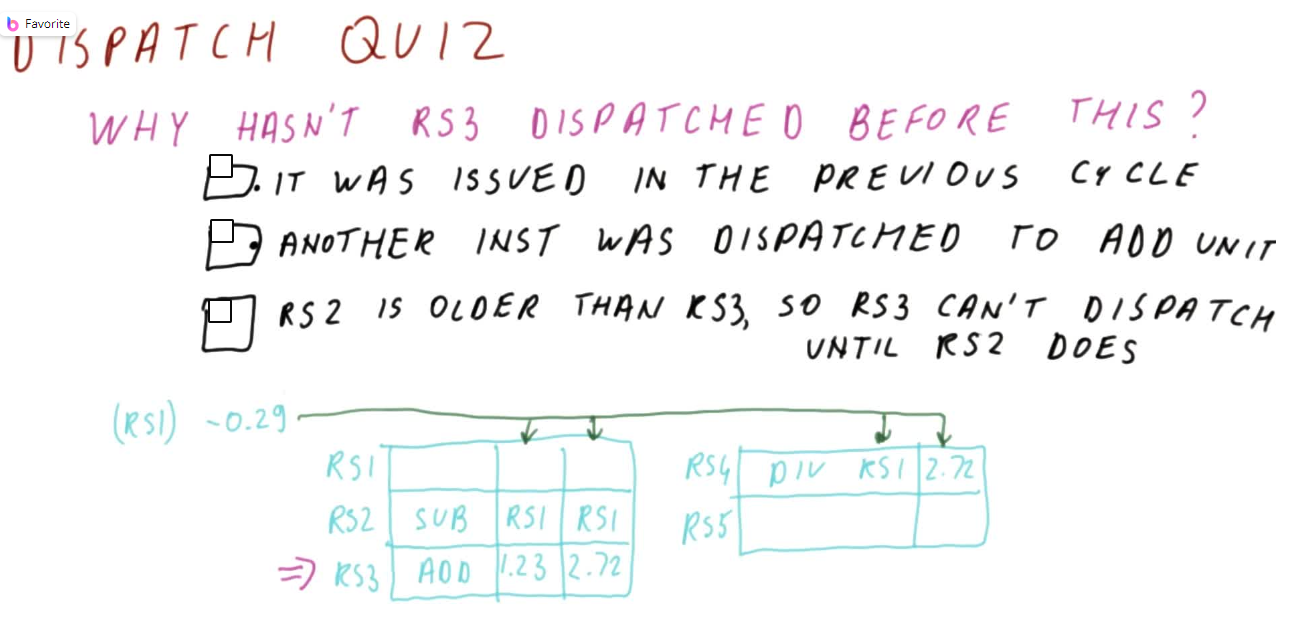 Favorite
DISPATCH QUIZ
WHY HASN'T RS3 DISPATCHED BEFORE THIS?
IT WAS ISSUED IN THE PREVIOUS CYCLE
ANOTHER INST WAS DISPATCHED TO ADD UNIT
RS2 IS OLDER THAN RS3, SO RS3 CAN'T DISPATCH
UNTIL RS2 DOES
(RS1) -0.29
RS1
RS2 SUB RS1 RS1
RS3 ADD 1.23 2.72
RS4 DIV RS1 2.72
RS5